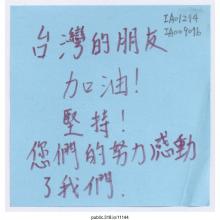 IA01294
IA009096
台灣的朋友
加油！
堅持！
您們的努力感動
了我們．
public.318.io/11144